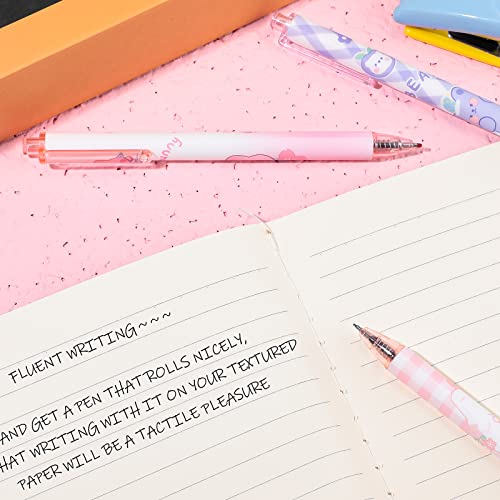 BEA
nny
FLUENT WRITING~~~
AND GET A PEN THAT ROLLS NICELY,
HAT WRITING WITH IT ON YOUR TEXTURED
PAPER WILL BE A TACTILE PLEASURE